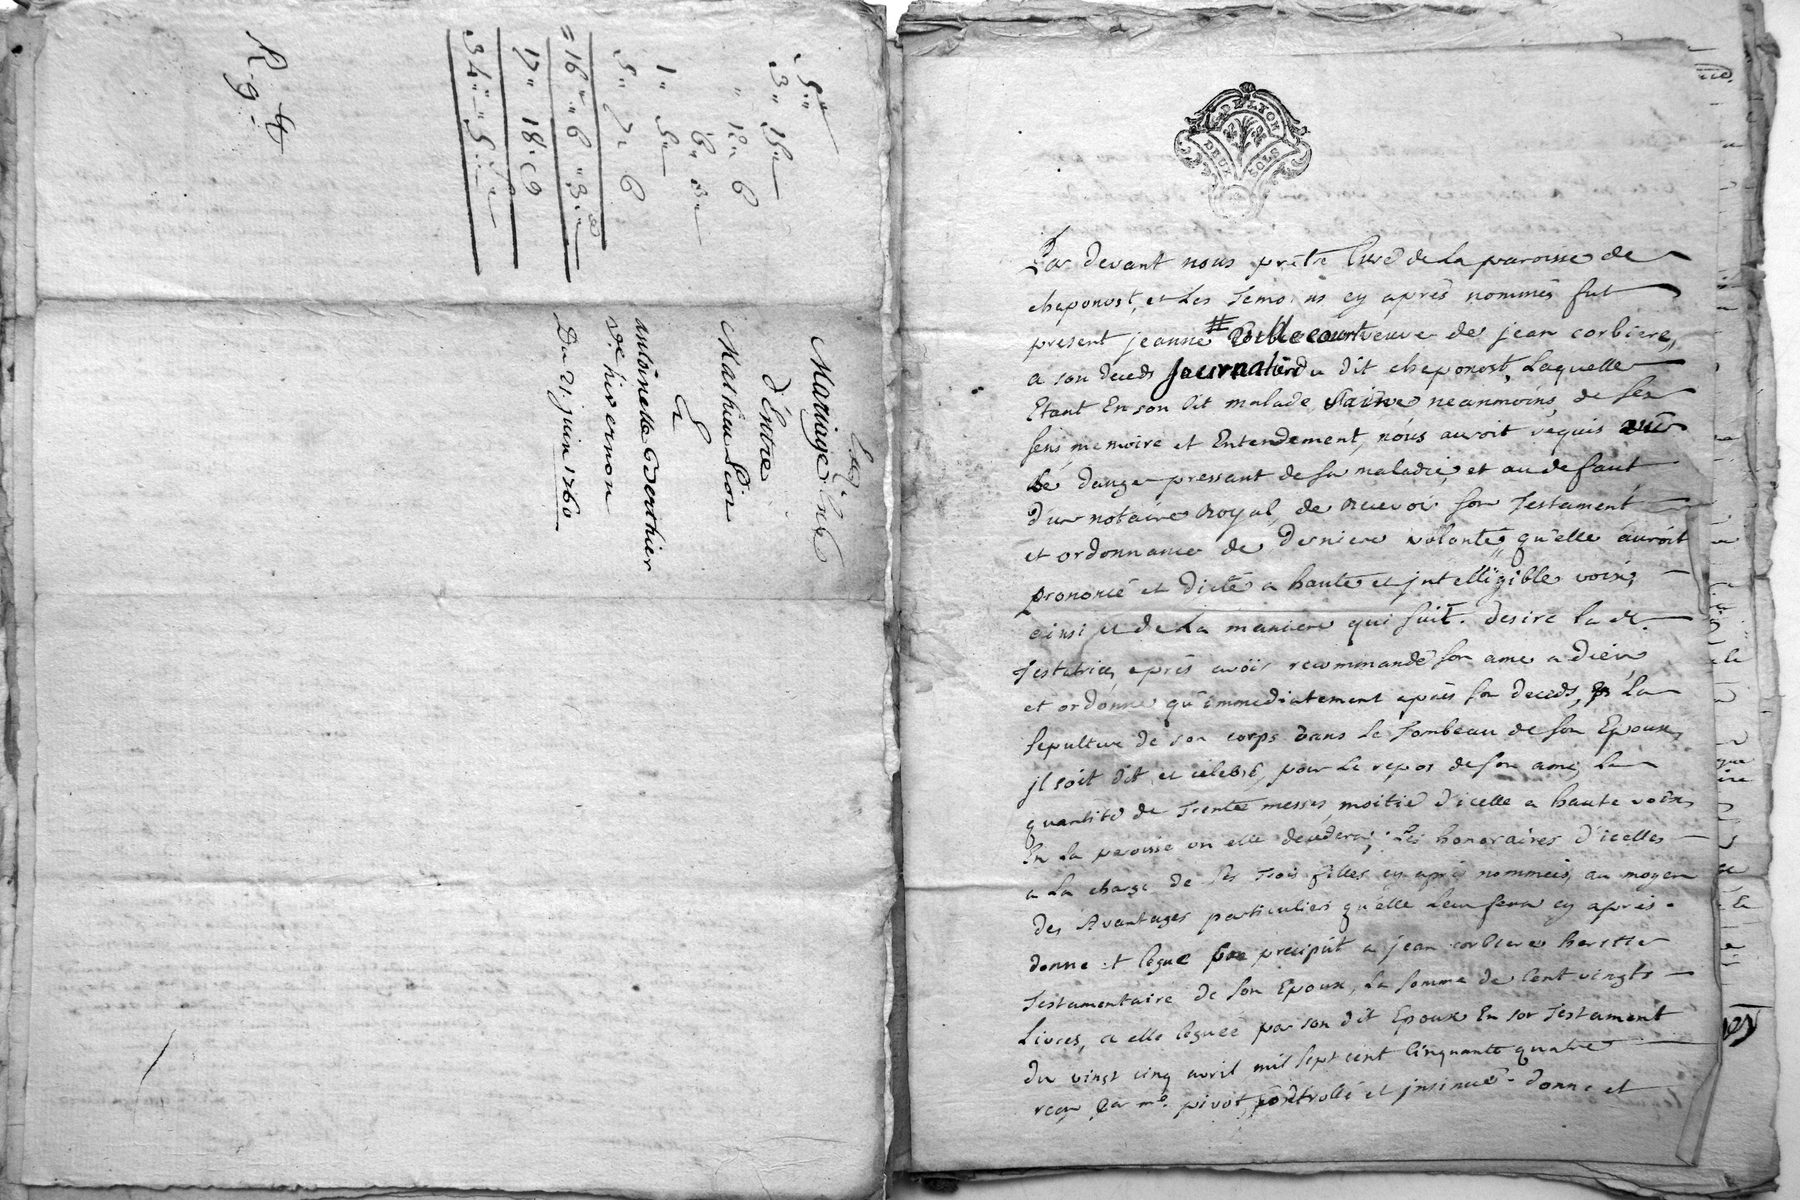 5"
3" 15"
" 12" 6
6" 3"
1" 5"
5" 7" 6
16" " 6 " 3
17" 18
34" " 5
R. 9
Mariage
d'Entre
Mathieu
&
antoinette Berthier
de hivernon
Du 21 juin 1760
DE LYON
DEUX SOLS
Par devant nous prêtre Curé de La paroisse de
cheponost, et Les Temoins cy après nommés fut
present jeanne # veuve de jean corbiere,
a son deceds Journalier du dit cheponost, Laquelle
Etant En son Lit malade, Saine neanmoins de Ses
Sens, memoire et Entendement, nous auroit requis
Le danger pressant de Sa maladie, et au defaut
d'un notaire Royal, de Recevoir Son Testament
et ordonnance de derniere volonté, qu'elle auroit
prononcé et dicté a haute et jntelligible voix,
ainsi et de La maniere qui Suit. desire la d.
Testatrice, après avoir recommandé Son ame a dieu
et ordonne qu'immediatement après Son deceds, La
Sepulture de son corps dans Le Tombeau de Son Epoux,
jl soit dit et celebré, pour Le repos de Son ame, La
quantité de Trente messes, moitié d'icelle a haute voix,
En La paroisse ou elle decedera; Les honoraires d'icelles
a La charge de Ses Trois filles cy après nommeés, au moyen
des Avantages particuliers qu'elle Leur fera cy après.
donne et legue par precipût a jean corbiere heritier
Testamentaire de Son Epoux, La Somme de Cent vingts
Livres, a elle leguée par son dit Epoux En son Testament
du vingt cinq avril mil Sept cent Cinquante quatre
recu par me. pivot, controllé et jnsinué. donne et